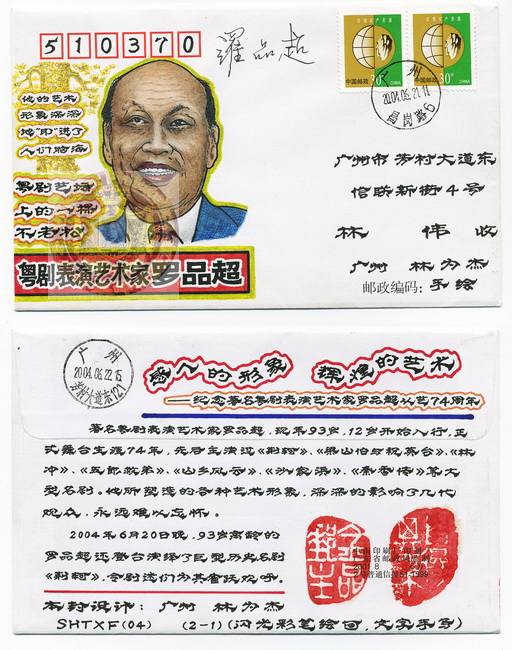 510370
罗品超
中国邮政 30分 CHINA
中国邮政 30分 CHINA
广州
2004.06.21.11
昌岗路6
他的艺术
形象深深
地“印”进了
人们脑海
粤剧艺坛
上的一棵
不老松
粤剧表演艺术家罗品超
广州市芳村大道东
信联新街4号
林 伟 收
广州 林为杰
邮政编码：手绘
广州
2004.06.22.15
芳村大道东(2)
感人的形象 辉煌的艺术
——纪念著名粤剧表演艺术家罗品超从艺74周年
著名粤剧表演艺术家罗品超，现年93岁，12岁开始入行，正
式舞台生涯74年，先后主演过《荆轲》、《梁山伯与祝英台》、《林
冲》、《五郎救弟》、《山乡风云》、《刘家洪》、《秦香莲》等大
型名剧。他所塑造的各种艺术形象，深深的影响了几代
观众，永远难以忘怀。
2004年6月20日晚，93岁高龄的
罗品超还登台演绎了巨型历史名剧
《荆轲》，令剧迷们为其雀跃欢呼。
本封设计：广州 林为杰
SHTXF(04) (2-1)(闪光彩笔绘画，文字手写)